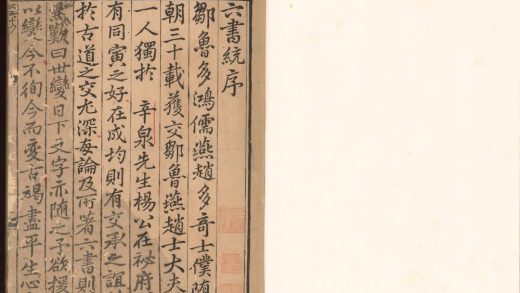 六書統序
鄒魯多鴻儒燕趙多奇士僕随
朝三十載獲交鄒魯燕趙士大夫
一人獨於 辛泉先生楊公在祕府
有同寅之好在成均則有交承之誼
於古道之交尤深每論及所著六書則
歎曰世變日下文字亦随之予欲援
以變今不徇今而愛古竭盡平生心